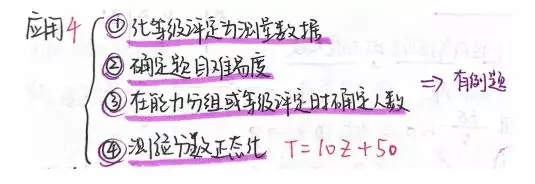 应用4
① 化等级评定为测量数据
② 确定题目难易度
③ 在能力分组或等级评定时确定人数
⇒ 有例题
④ 测验分数正态化 T=10Z+50